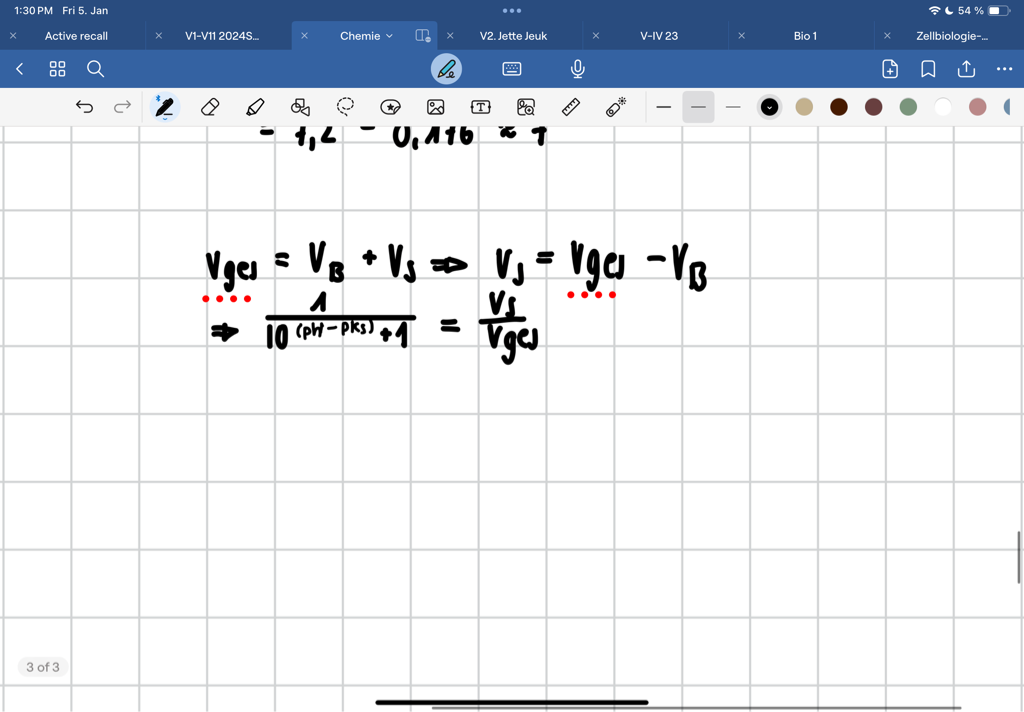 1:30 PM Fri 5. Jan 54 %
Active recall V1-V11 2024S... Chemie V2. Jette Jeuk V-IV 23 Bio 1 Zellbiologie-...
= 7,2 - 0,176 ≈ 7
Vges = VB + VS ⇒ VS = Vges - VB
⇒ 1 / 10^(pH - pKs) + 1 = VS / Vges
3 of 3